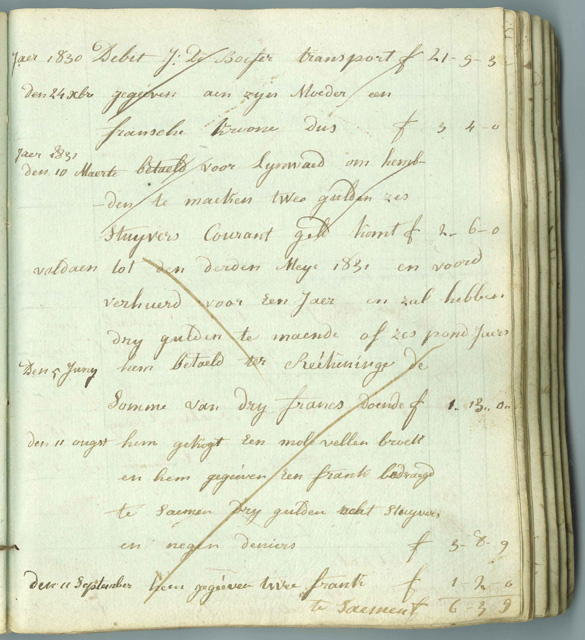 Jaer 1830 Debet J: De Boefer transport f 21-9-3
den 24 Xbr gegeven aen zijn Moeder een
fransche kroone dus f 3 4-0
Jaer 1831
den 10 Maerte betaeld voor lynwaed om hemb-
den te maeken twee gulden zes
Stuyvers Courant geld komt f 2-6-0
voldaen tot den derden Meye 1831 en voord
verhuerd voor Een Jaer en zal hebben
dry gulden te maende of zes pond Jaers
Den 5 Juny hem betaeld ter Reekeninge de
Somme van dry francs doende f 1-13-0
den 11 ougst hem gekogt Een mole vellen broek
en hem gegeven Een frank bedraegd
te Saemen dry gulden acht Stuyvers
en negen deniers f 3-8-9
den 11 September hem gegeven twee frank f 1-2-0
te Saement 6-3 9